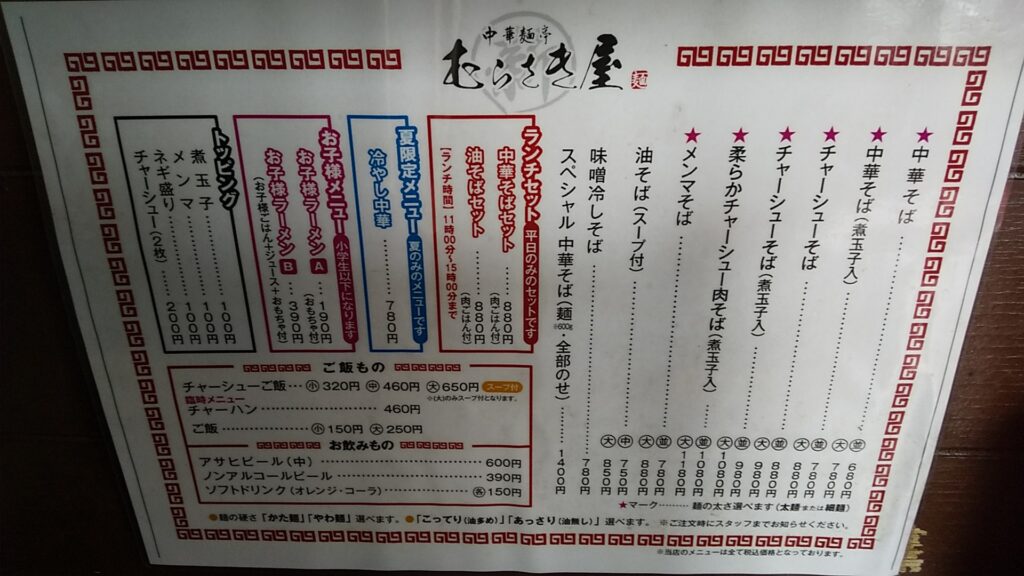 中華麺亭
むらさき屋
麺
★中華そば………並 680円
大 780円
★中華そば(煮玉子入)………並 780円
大 880円
★チャーシューそば………並 880円
大 980円
★チャーシューそば(煮玉子入)………並 980円
大 1080円
★柔らかチャーシュー肉そば(煮玉子入)…並 1080円
大 1180円
★メンマそば………並 780円
大 880円
油そば(スープ付)………中 750円
大 850円
味噌冷しそば………780円
スペシャル 中華そば(麺※600g・全部のせ)……1400円
ランチセット 平日のみのセットです
中華そばセット…880円
(肉ごはん付)
油そばセット……880円
(肉ごはん付)
[ランチ時間] 11時00分〜15時00分まで
夏限定メニュー 夏のみのメニューです
冷やし中華………780円
お子様メニュー 小学生以下になります
お子様ラーメン A…190円
(おもちゃ付)
お子様ラーメン B…390円
(お子様ごはん+ジュース+おもちゃ付)
トッピング
煮玉子………100円
メンマ………100円
ネギ盛り………100円
チャーシュー(2枚)…200円
ご飯もの
チャーシューご飯…小 320円 中 460円 大 650円 スープ付
※(大)のみスープ付となります。
臨時メニュー
チャーハン………460円
ご飯………小 150円 大 250円
お飲みもの
アサヒビール(中)………600円
ノンアルコールビール………390円
ソフトドリンク(オレンジ・コーラ)………各150円
★マーク………麺の太さ選べます(太麺または細麺)
●麺の硬さ「かた麺」「やわ麺」選べます。●「こってり(油多め)」「あっさり(油無し)」選べます。※ご注文時にスタッフまでお知らせください。
※当店のメニューは全て税込価格となっております。